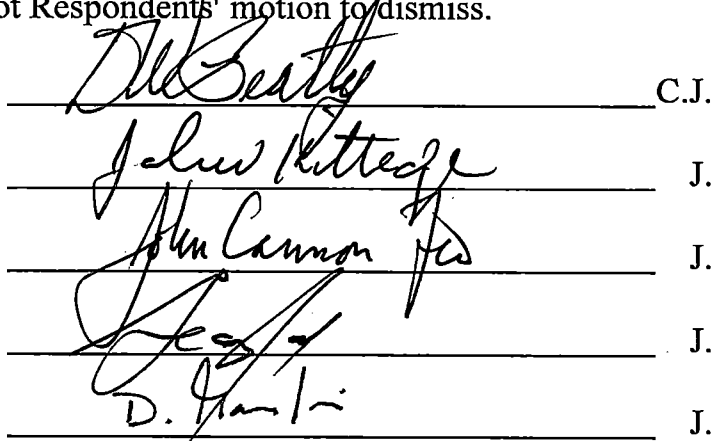 ot Respondents' motion to dismiss.
Beatty C.J.
Kittredge J.
John Cannon Few J.
J.
D. J.